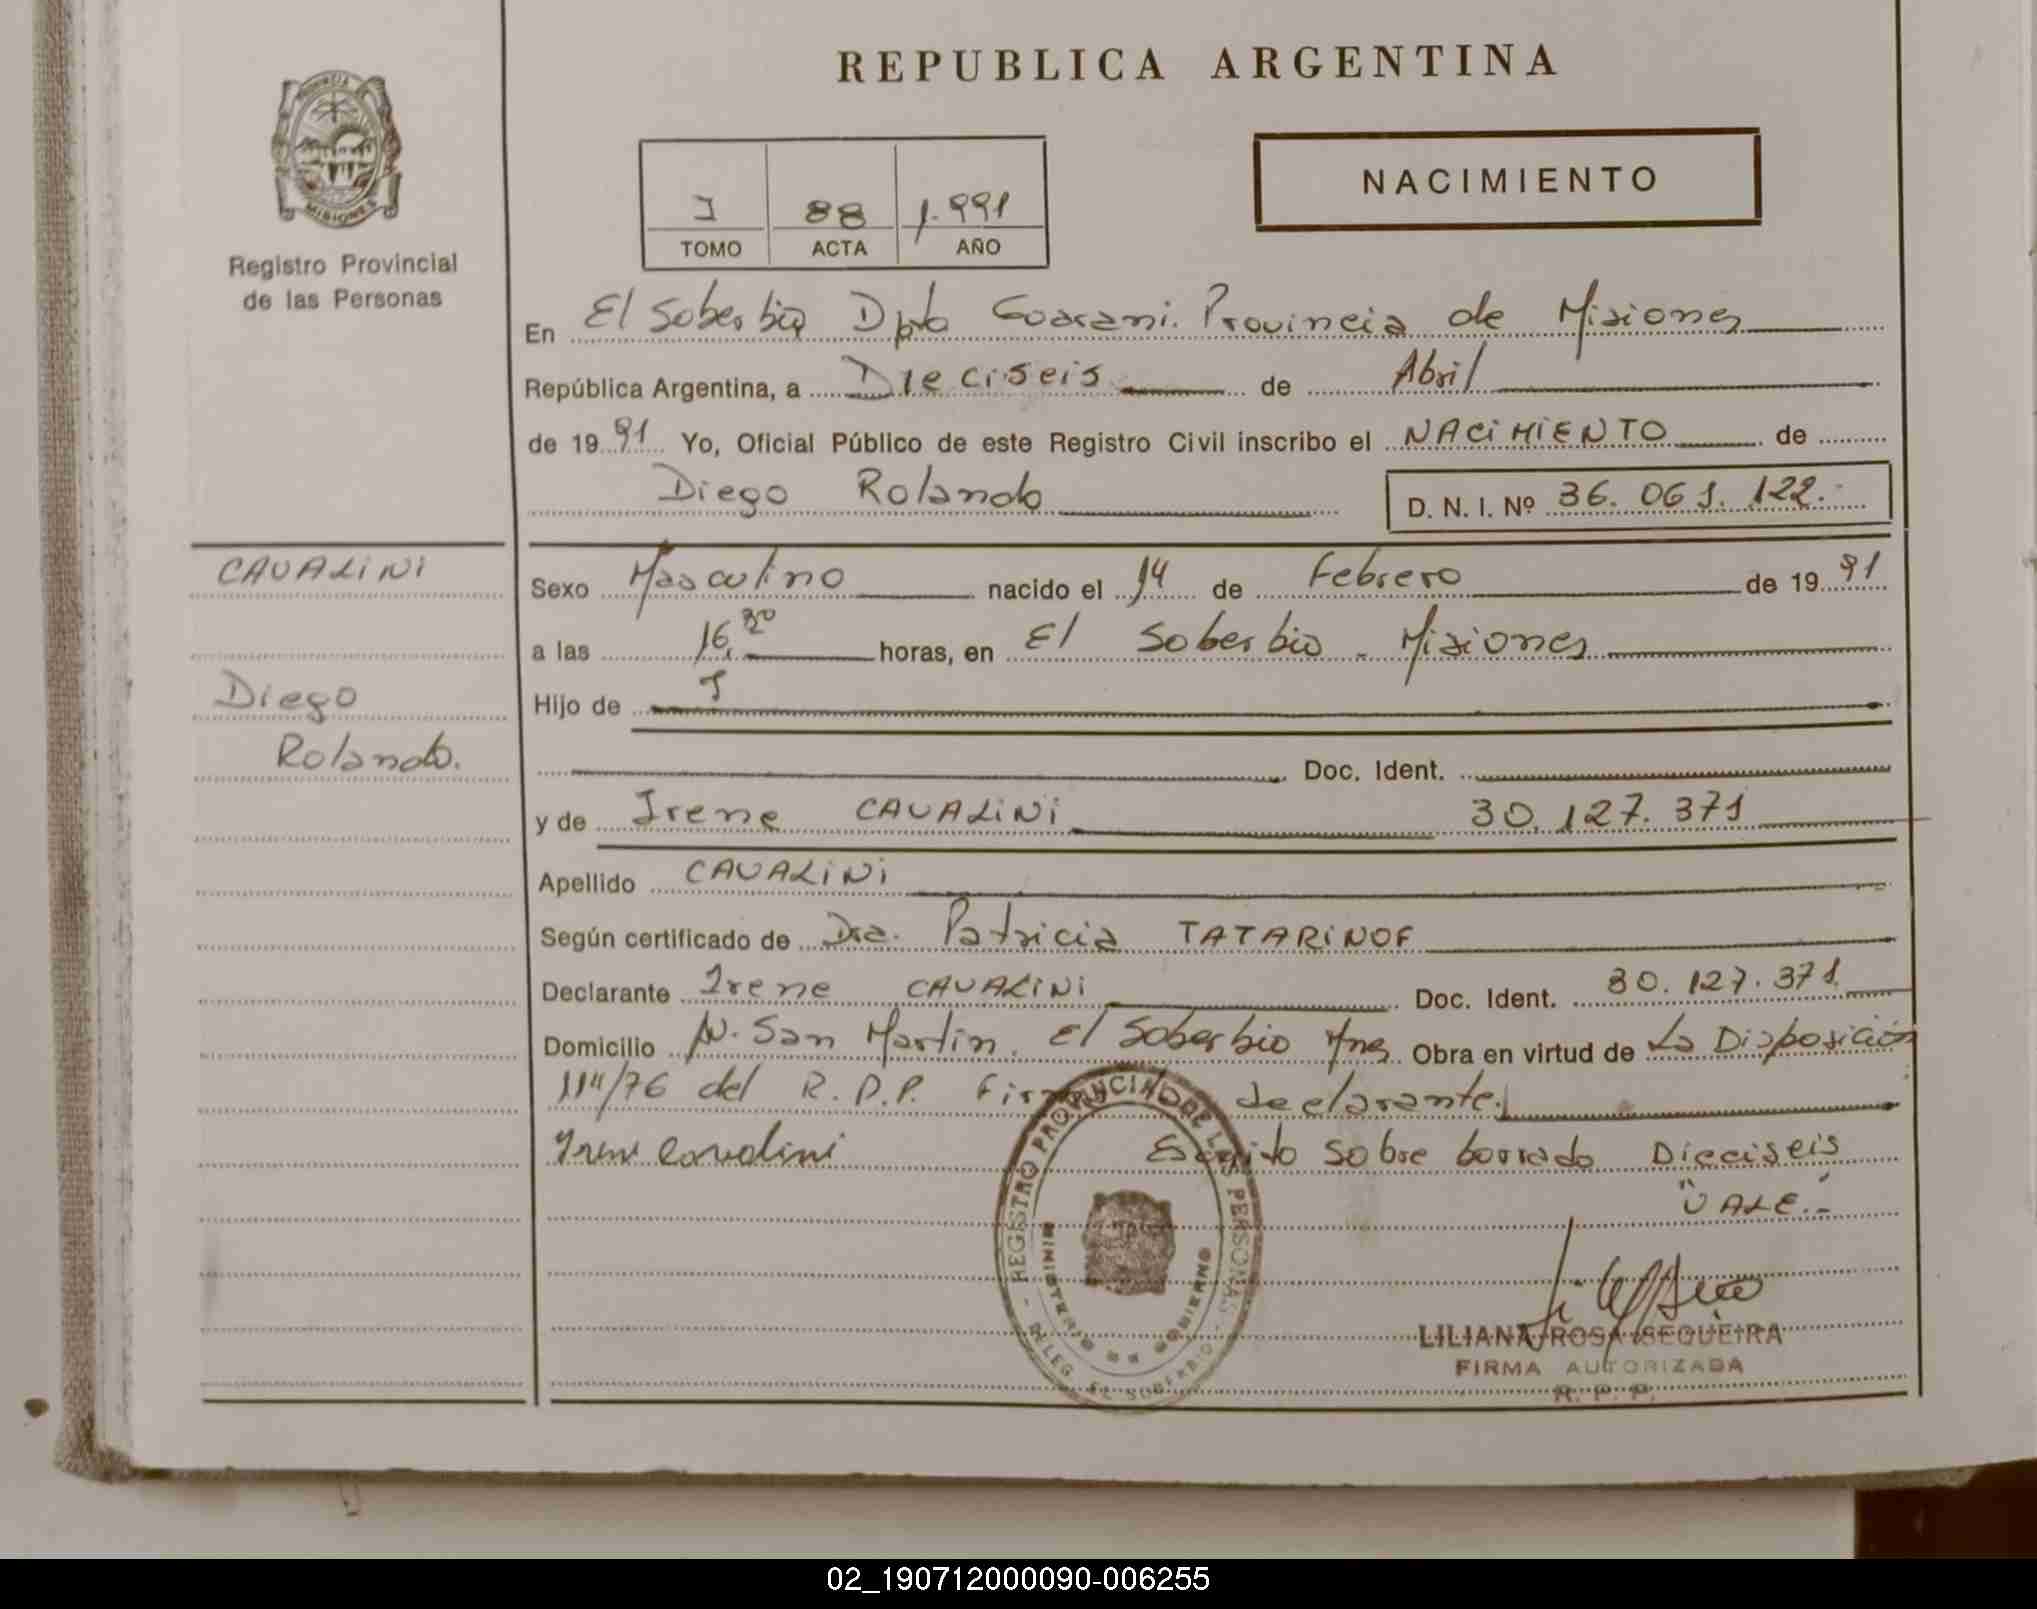 REPUBLICA ARGENTINA
PROVINCIA DE
MISIONES
Registro Provincial
de las Personas
I 88 1.991
TOMO ACTA AÑO
NACIMIENTO
En El Soberbio Dpto Guarani. Provincia de Misiones
República Argentina, a Dieciseis de Abril
de 19 91 Yo, Oficial Público de este Registro Civil inscribo el NACIMIENTO de
Diego Rolando D. N. I. Nº 36.061.122.-
CAVALINI
Diego
Rolando.
Sexo Masculino nacido el 14 de Febrero de 19 91
a las 16,30 horas, en El Soberbio - Misiones
Hijo de
Doc. Ident.
y de Irene CAVALINI 30.127.371
Apellido CAVALINI
Según certificado de Dra. Patricia TATARINOF
Declarante Irene CAVALINI Doc. Ident. 30.127.371
Domicilio Av. San Martin. El Soberbio Mnes Obra en virtud de La Disposición
114/76 del R.P.P. Firma declarante.
Irene Cavalini Escrito sobre borrado Dieciseis
"VALE".-
REGISTRO PROVINCIAL DE LAS PERSONAS - DELEG. EL SOBERBIO -
MINISTERIO DE GOBIERNO
LILIANA ROSA SEQUEIRA
FIRMA AUTORIZADA
R. P. P.
02_190712000090-006255